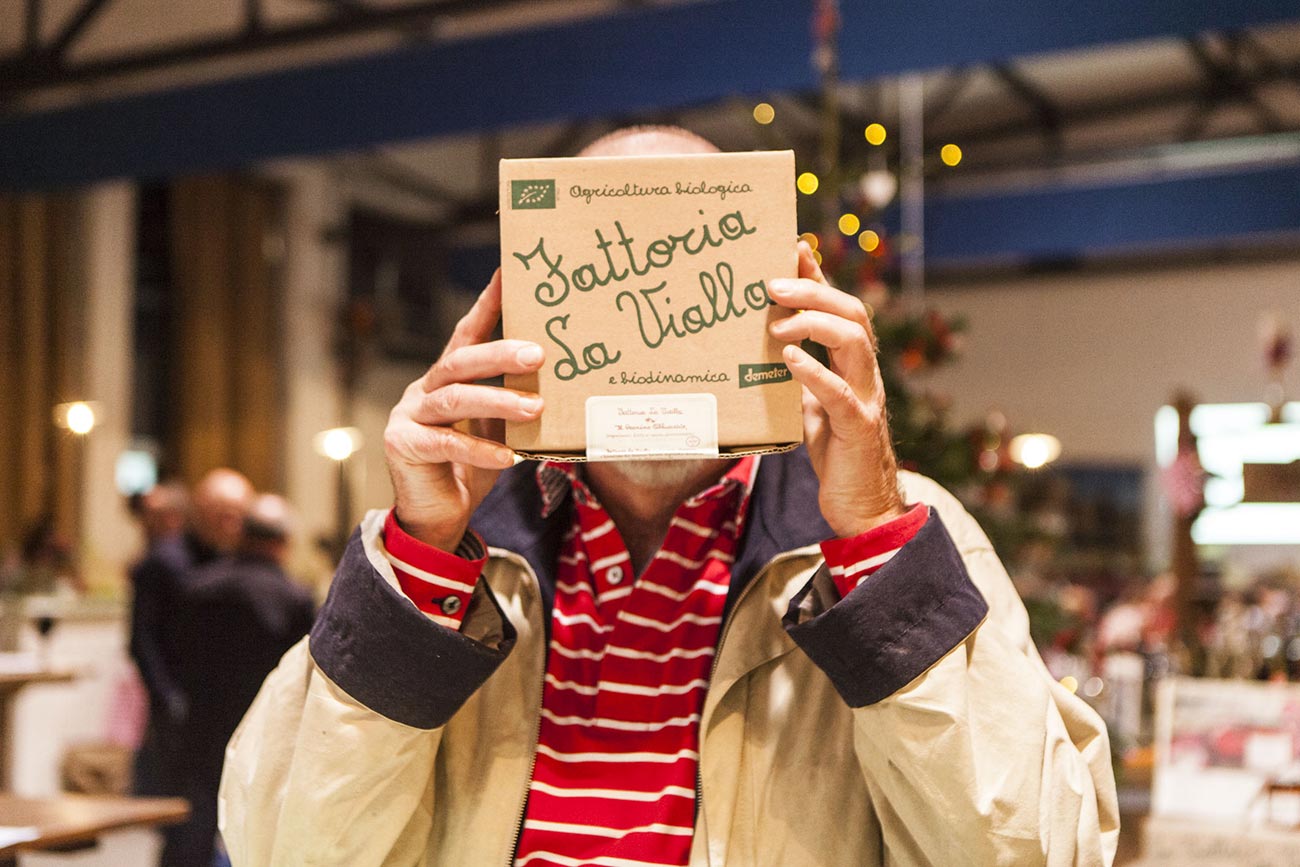 Agricoltura biologica
Fattoria
La Vialla
e biodinamica
demeter
Fattoria La Vialla